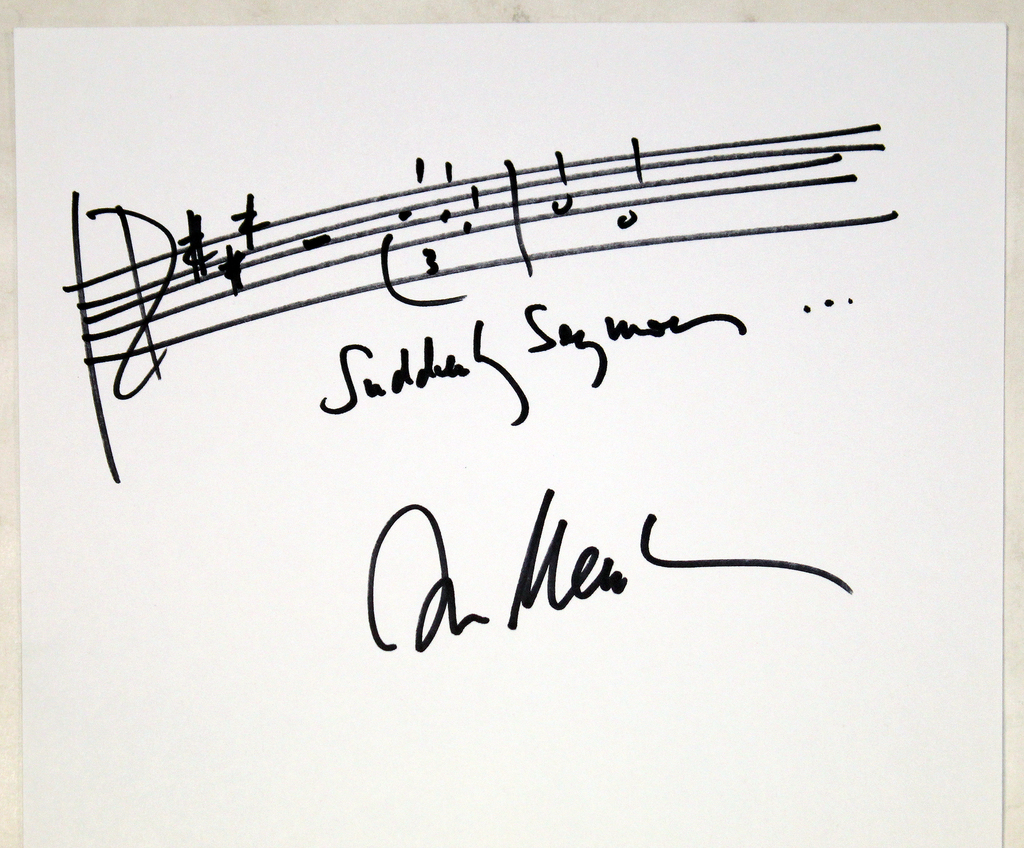 3
Suddenly Seymour ...
Alan Menken